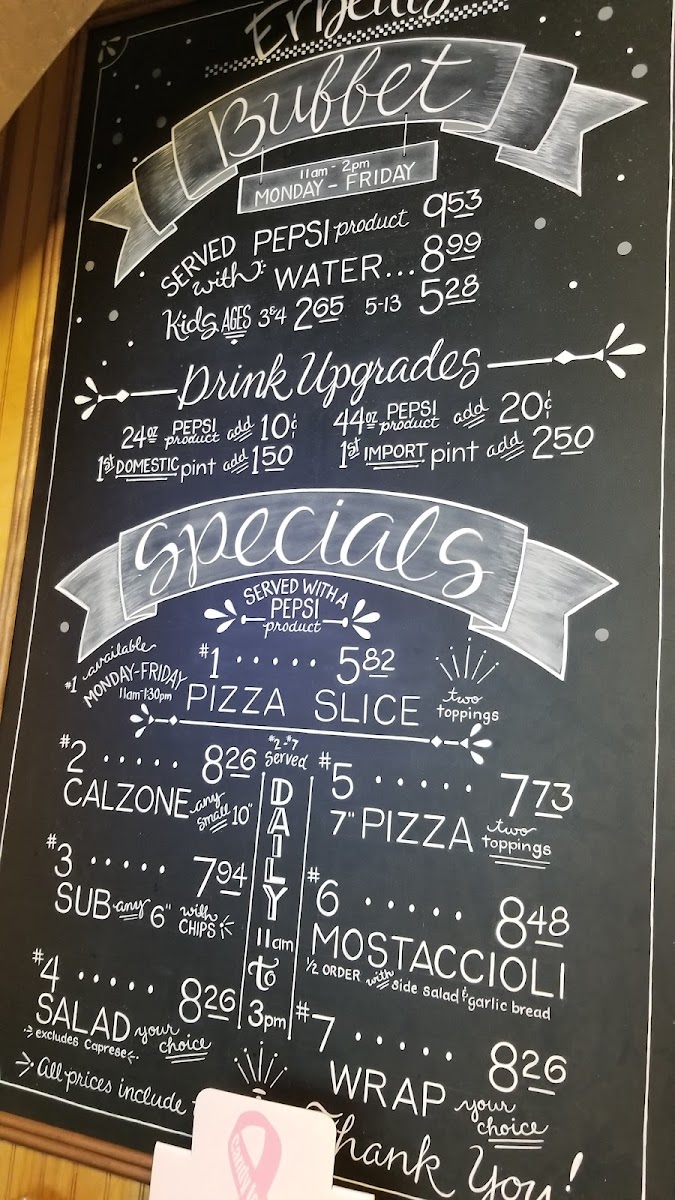 Buffet
11am - 2pm
MONDAY - FRIDAY
SERVED with: PEPSI product 9.53
WATER... 8.99
Kids AGES 3&4 2.65 5-13 5.28
Drink Upgrades
24oz PEPSI product add 10¢
44oz PEPSI product add 20¢
1st DOMESTIC pint add 1.50
1st IMPORT pint add 2.50
Specials
SERVED WITH A
PEPSI
product
#1 available
MONDAY-FRIDAY
11am-1:30pm
#1 ..... 5.82
PIZZA SLICE two toppings
#2-#7
Served
DAILY
11am
to
3pm
#2 ..... 8.26
CALZONE any small 10"
#3 ..... 7.94
SUB any 6" with CHIPS
#4 ..... 8.26
SALAD your choice
excludes Caprese
#5 ..... 7.73
7" PIZZA two toppings
#6 ..... 8.48
MOSTACCIOLI
1/2 ORDER with side salad & garlic bread
#7 ..... 8.26
WRAP your choice
All prices include
Thank You!